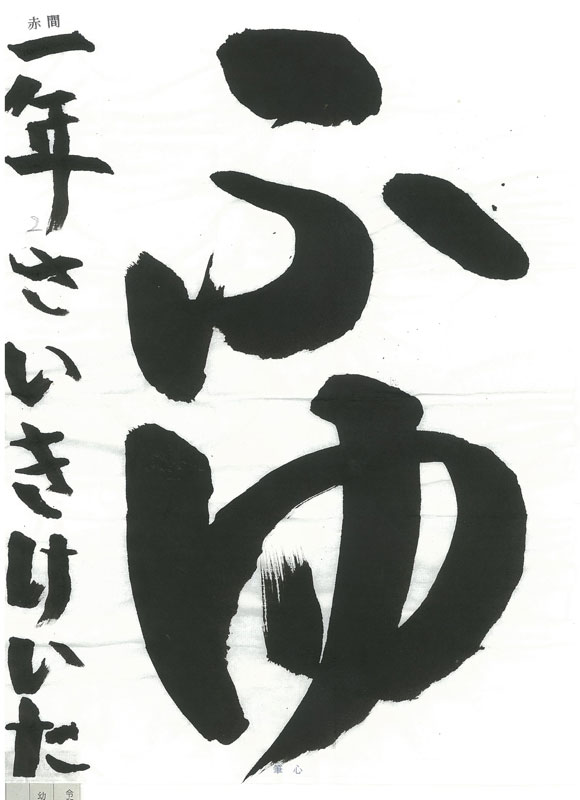 ふゆ
赤間
一年 さいきけいた
2
筆心
幼